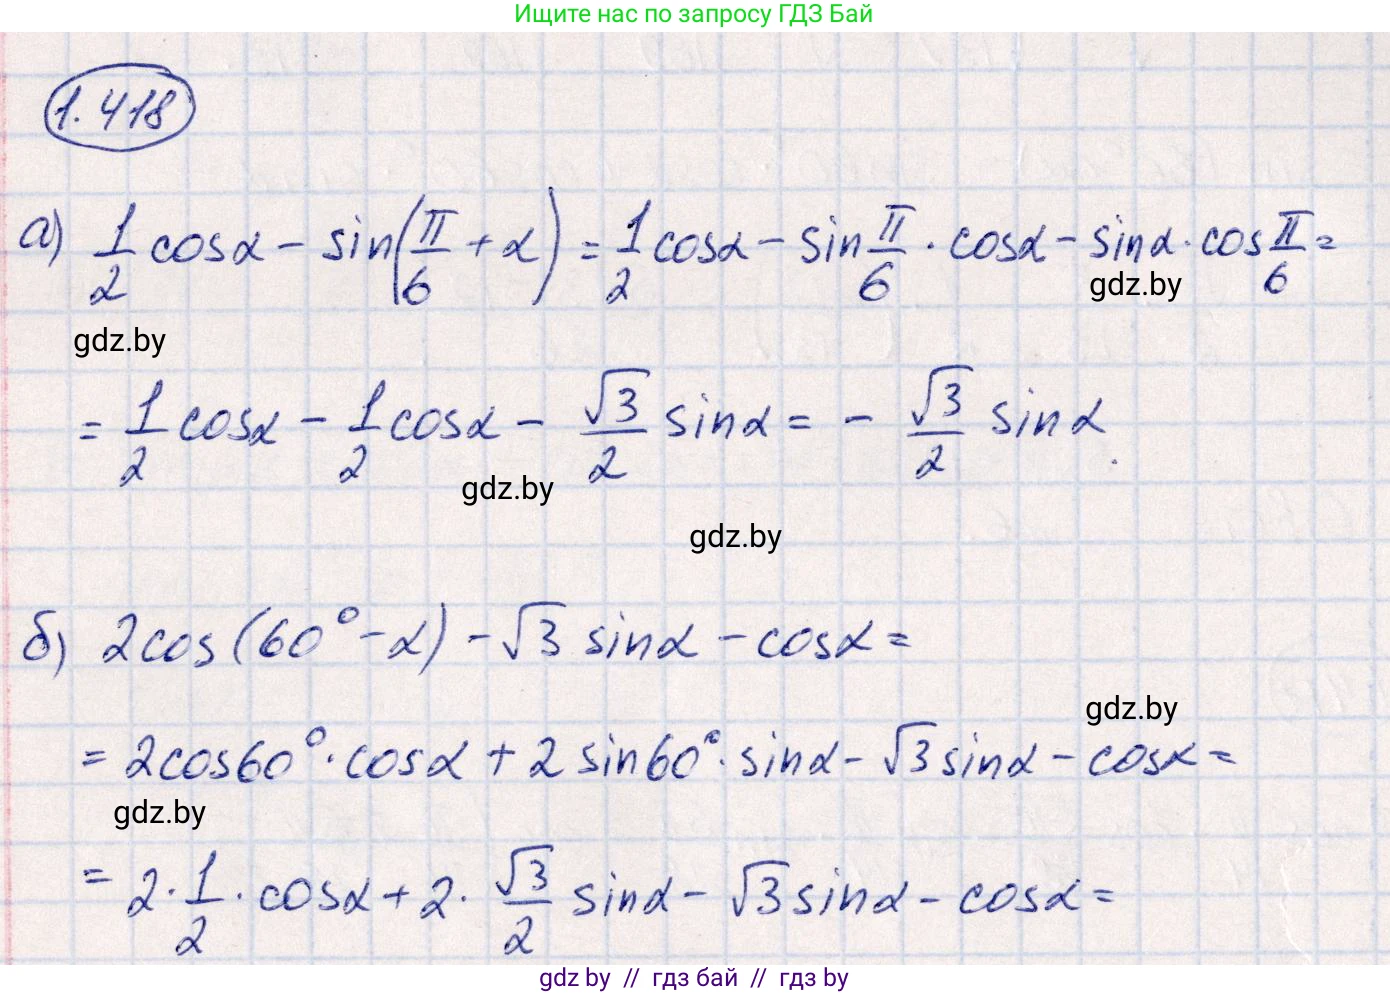 Ищите нас по запросу ГДЗ Бай
1.418
а) 1/2 cosα - sin(π/6 + α) = 1/2 cosα - sin π/6 · cosα - sinα · cos π/6 =
gdz.by
gdz.by
= 1/2 cosα - 1/2 cosα - √3/2 sinα = - √3/2 sinα.
gdz.by
gdz.by
б) 2cos(60° - α) - √3 sinα - cosα =
gdz.by
= 2cos60° · cosα + 2 sin60° · sinα - √3 sinα - cosα =
gdz.by
= 2 · 1/2 · cosα + 2 · √3/2 sinα - √3 sinα - cosα =
gdz.by // гдз бай // гдз by